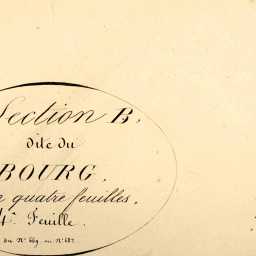 Section B.
dite du
BOURG.
quatre feuilles.
4e Feuille.
du N° 669 au N° 687